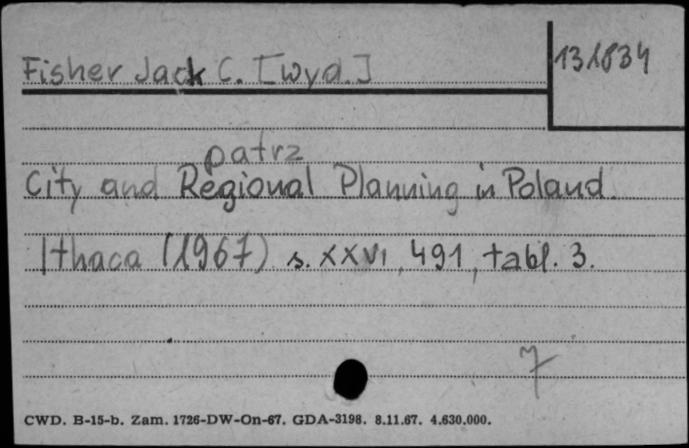 Fisher Jack C. [wyd.]
131834
patrz
City and Regional Planning in Poland.
Ithaca (1967) s. XXVI, 491, tabl. 3.
7
CWD. B-15-b. Zam. 1726-DW-On-67. GDA-3198. 8.11.67. 4.630.000.